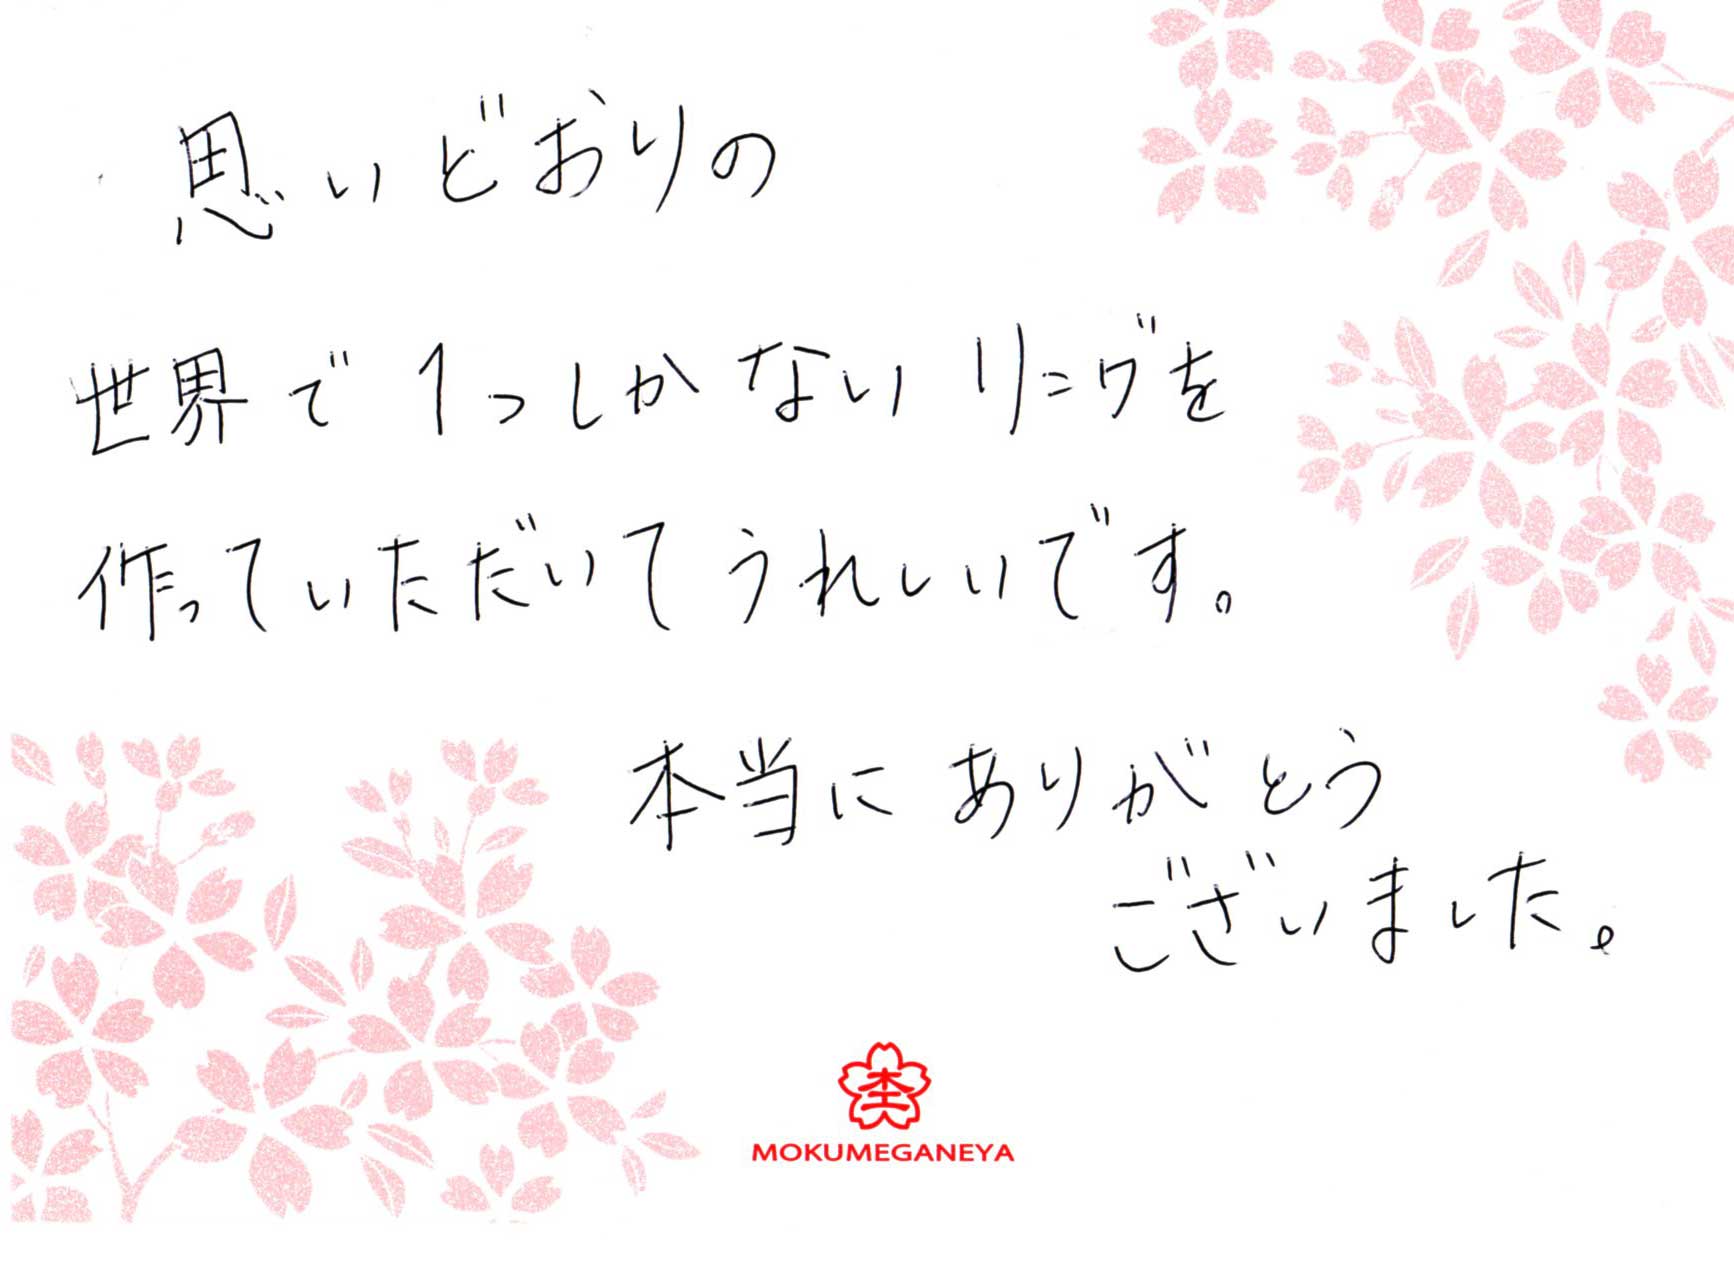 思いどおりの
世界で1つしかないリングを
作っていただいてうれしいです。
本当にありがとう
ございました。
MOKUMEGANEYA